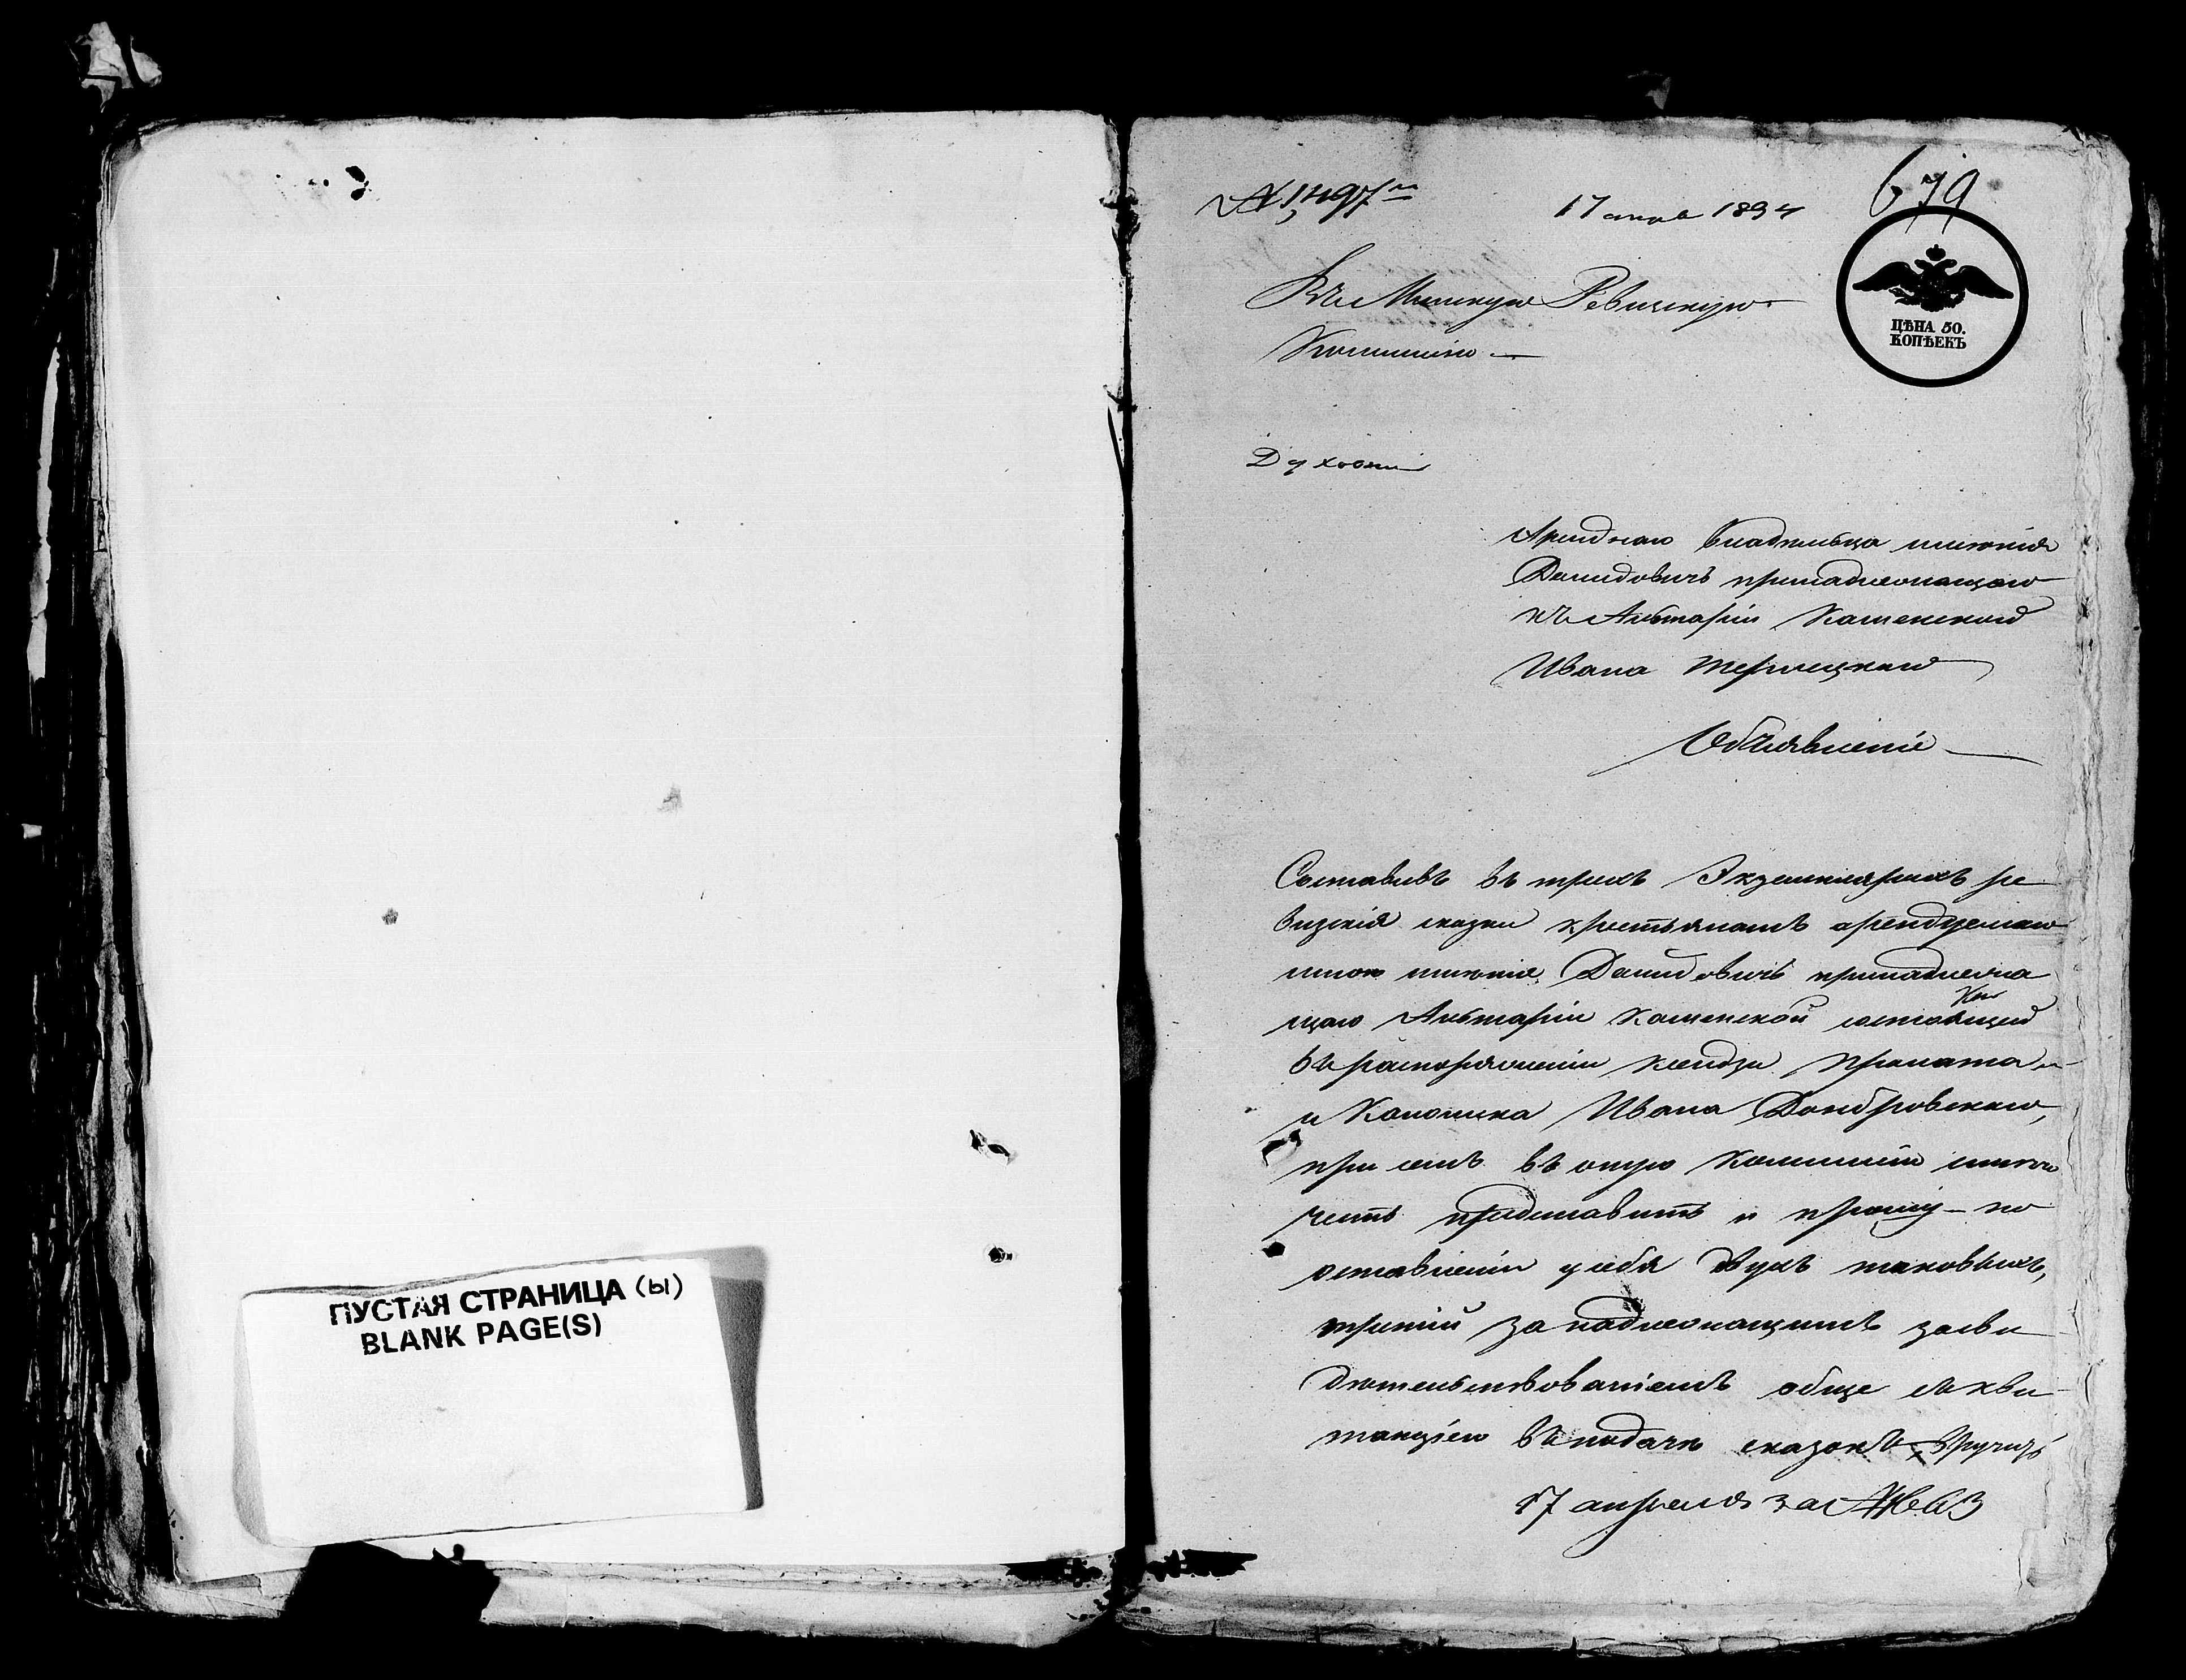 ПУСТАЯ СТРАНИЦА (ы)
BLANK PAGE(S)
679
№ 1,497
17 апре 1834
ЦѢНА 50.
КОПѢЕКЪ
Въ Минскую Ревизскую
Комиссию
Духовн
Арендного владельца имѣнія
Демидовичъ принадлежащаго
къ Алтаріи Каменской
Ивана
Объявленіе
Составивъ въ трехъ Экземплярахъ ре
визскія сказки крестьянамъ арендуемаго
мною имѣнія Демидовичъ принадлежа
щаго Алтаріи Каменской состоящей
въ распоряженіи ксендза Прелата
и Каноника Ивана Домбровскаго,
при семъ въ оную Комиссию имѣю
честь представить и прошу по
оставленіи у себя двухъ таковыхъ,
третій за надлежащимъ засви
дѣтельствованіемъ обще съ кви
танціею въ подачѣ сказокъ вручить
17 апреля за №